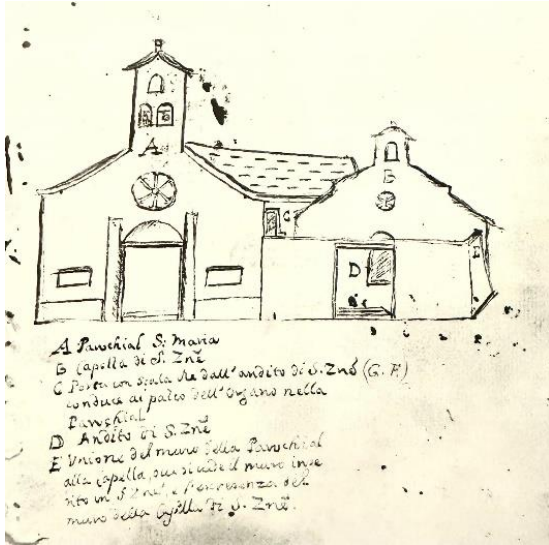 A
B
C
D
E
A Parochial S: Maria
B Capella di S. Zně
C Porta con scala che dall'andito di S. Zně (G. F.)
conduce al palco dell'organo nella
Parochial
D Andito di S. Zně
E Unione del muro della Parochial
alla capella, ove si vede il muro inse
rito in S. Zně, e l'
muro della Capella di S. Zně.